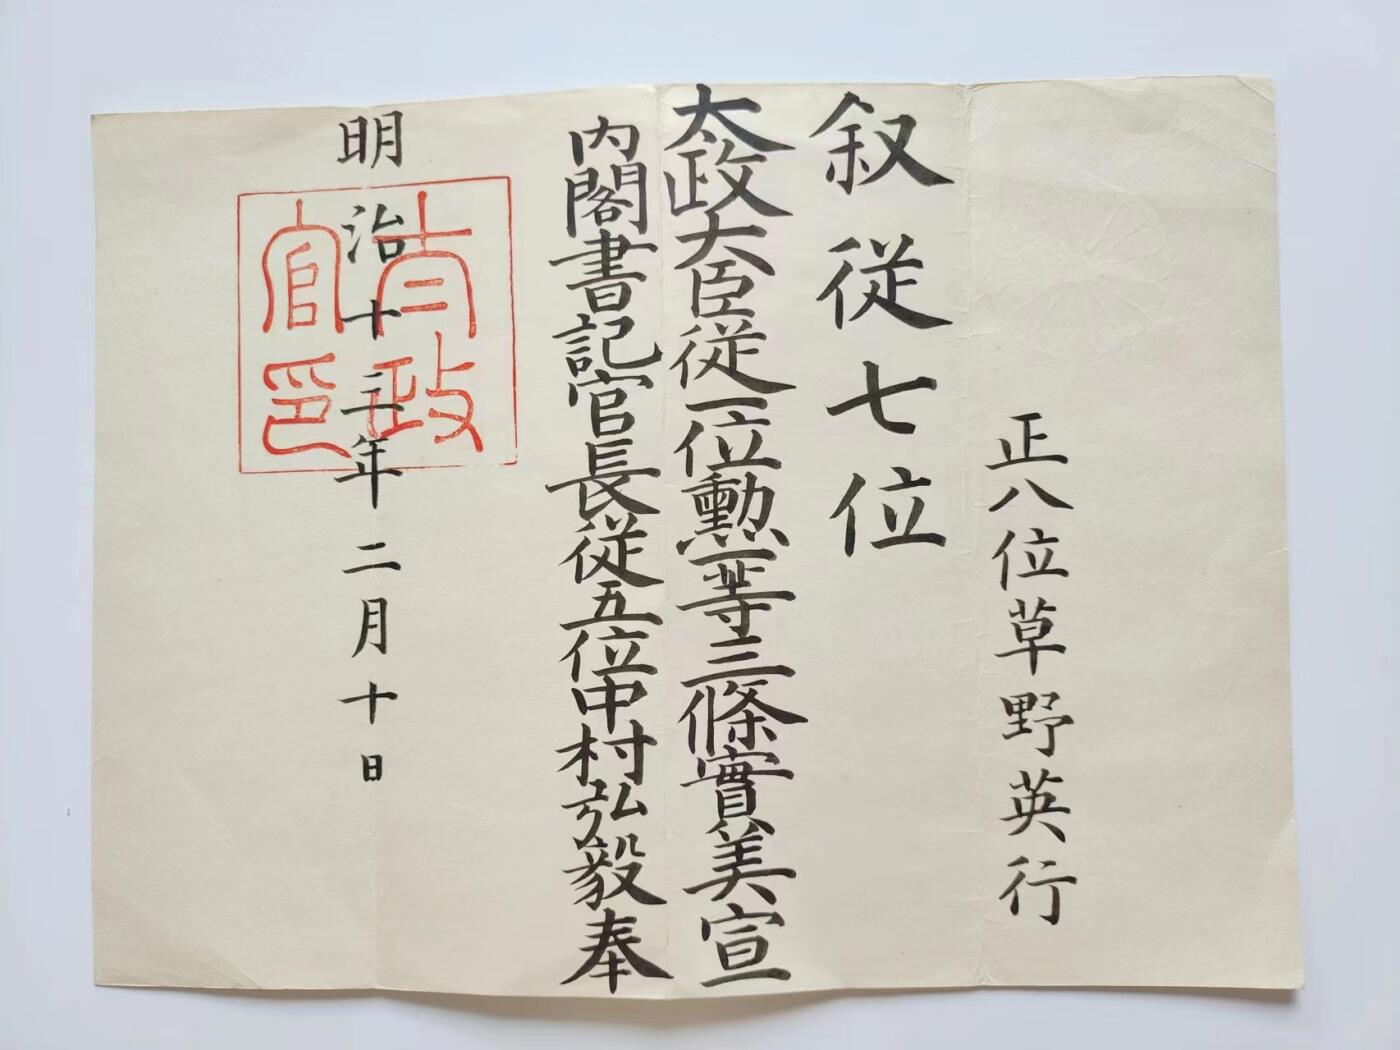 正八位草野英行
叙従七位
太政大臣従一位勲一等三條實美宣
内閣書記官長従五位中村弘毅奉
明治十三年二月十日
太政官印